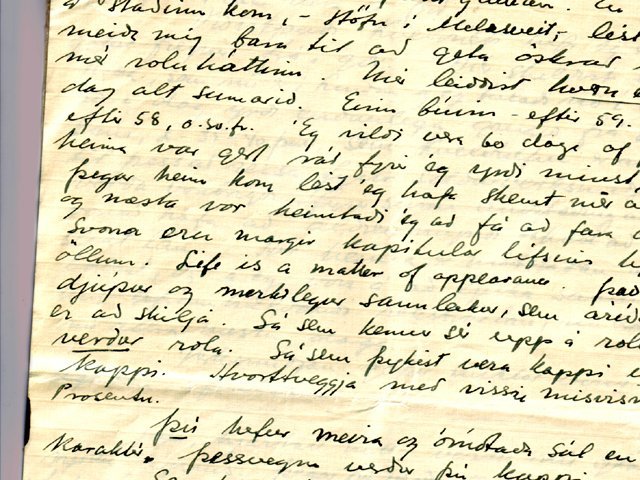 á staðinn kom, - Stöfn í Melasveit, - lést
meiða mig fara til að geta öskrað
mér roluhættinn. Mér leiddist hvern
dag alt sumarið. Einn búinn - eftir 59.
eftir 58, o.sv.fr. Ég vildi vera 60 daga af
heima var gert ráð fyrir ég yndi minst
þegar heim kom lést ég hafa skemt mér
og næsta vor heimtaði ég að fá að fara
Svona eru margir kapitular lífsins hj
öllum. Life is a matter of appearance. Það
djúpur og merkilegur sannleikur, sem áríð
er að skilja. Sá sem kemur sér upp á rol
verður rola. Sá sem þykist vera kappi
kappi. Hvorttveggja með vissri misvisn
Prosentu.
Þú hefur meira og ómótaða sál en
karakter. Þessvegna verður þú kappi